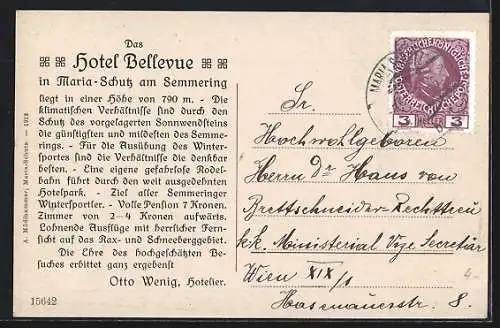 Das
Hotel Bellevue
in Maria-Schutz am Semmering
liegt in einer Höhe von 790 m. - Die
klimatischen Verhältnisse sind durch den
Schutz des vorgelagerten Sonnwendsteins
die günstigsten und mildesten des Semme-
rings. - Für die Ausübung des Winter-
sportes sind die Verhältnisse die denkbar
besten. - Eine eigene gefahrlose Rodel-
bahn führt durch den weit ausgedehnten
Hotelpark. - Ziel aller Semmeringer
Wintersportler. - Volle Pension 7 Kronen.
Zimmer von 2-4 Kronen aufwärts.
Lohnende Ausflüge mit herrlicher Fern-
sicht auf das Rax- und Schneeberggebiet.
Die Ehre des hochgeschätzten Be-
suches erbittet ganz ergebenst
Otto Wenig, Hotelier.
15642
MARIA
3 3
Sr.
Hochwohlgeboren
Herrn Dr Hans von
Brettschneider-Rechttreu
kk. Ministerial Vize Secretär
Wien XIX/1
Hasenauerstr. 8.